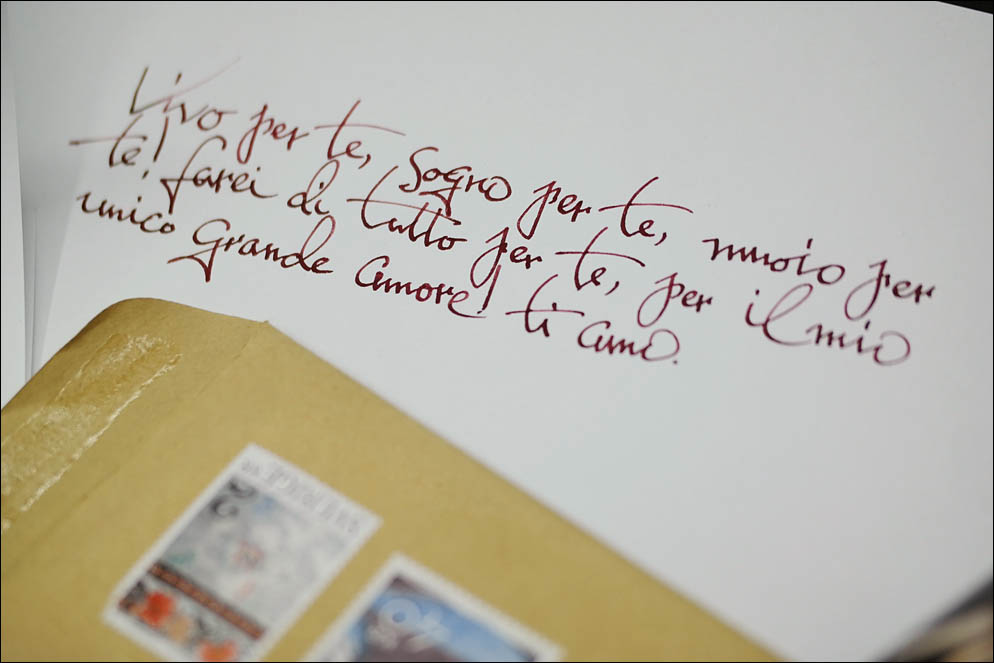 Vivo per te, Sogno per te, muoio per
te! farei di tutto per te, per il mio
unico Grande Amore! ti amo.